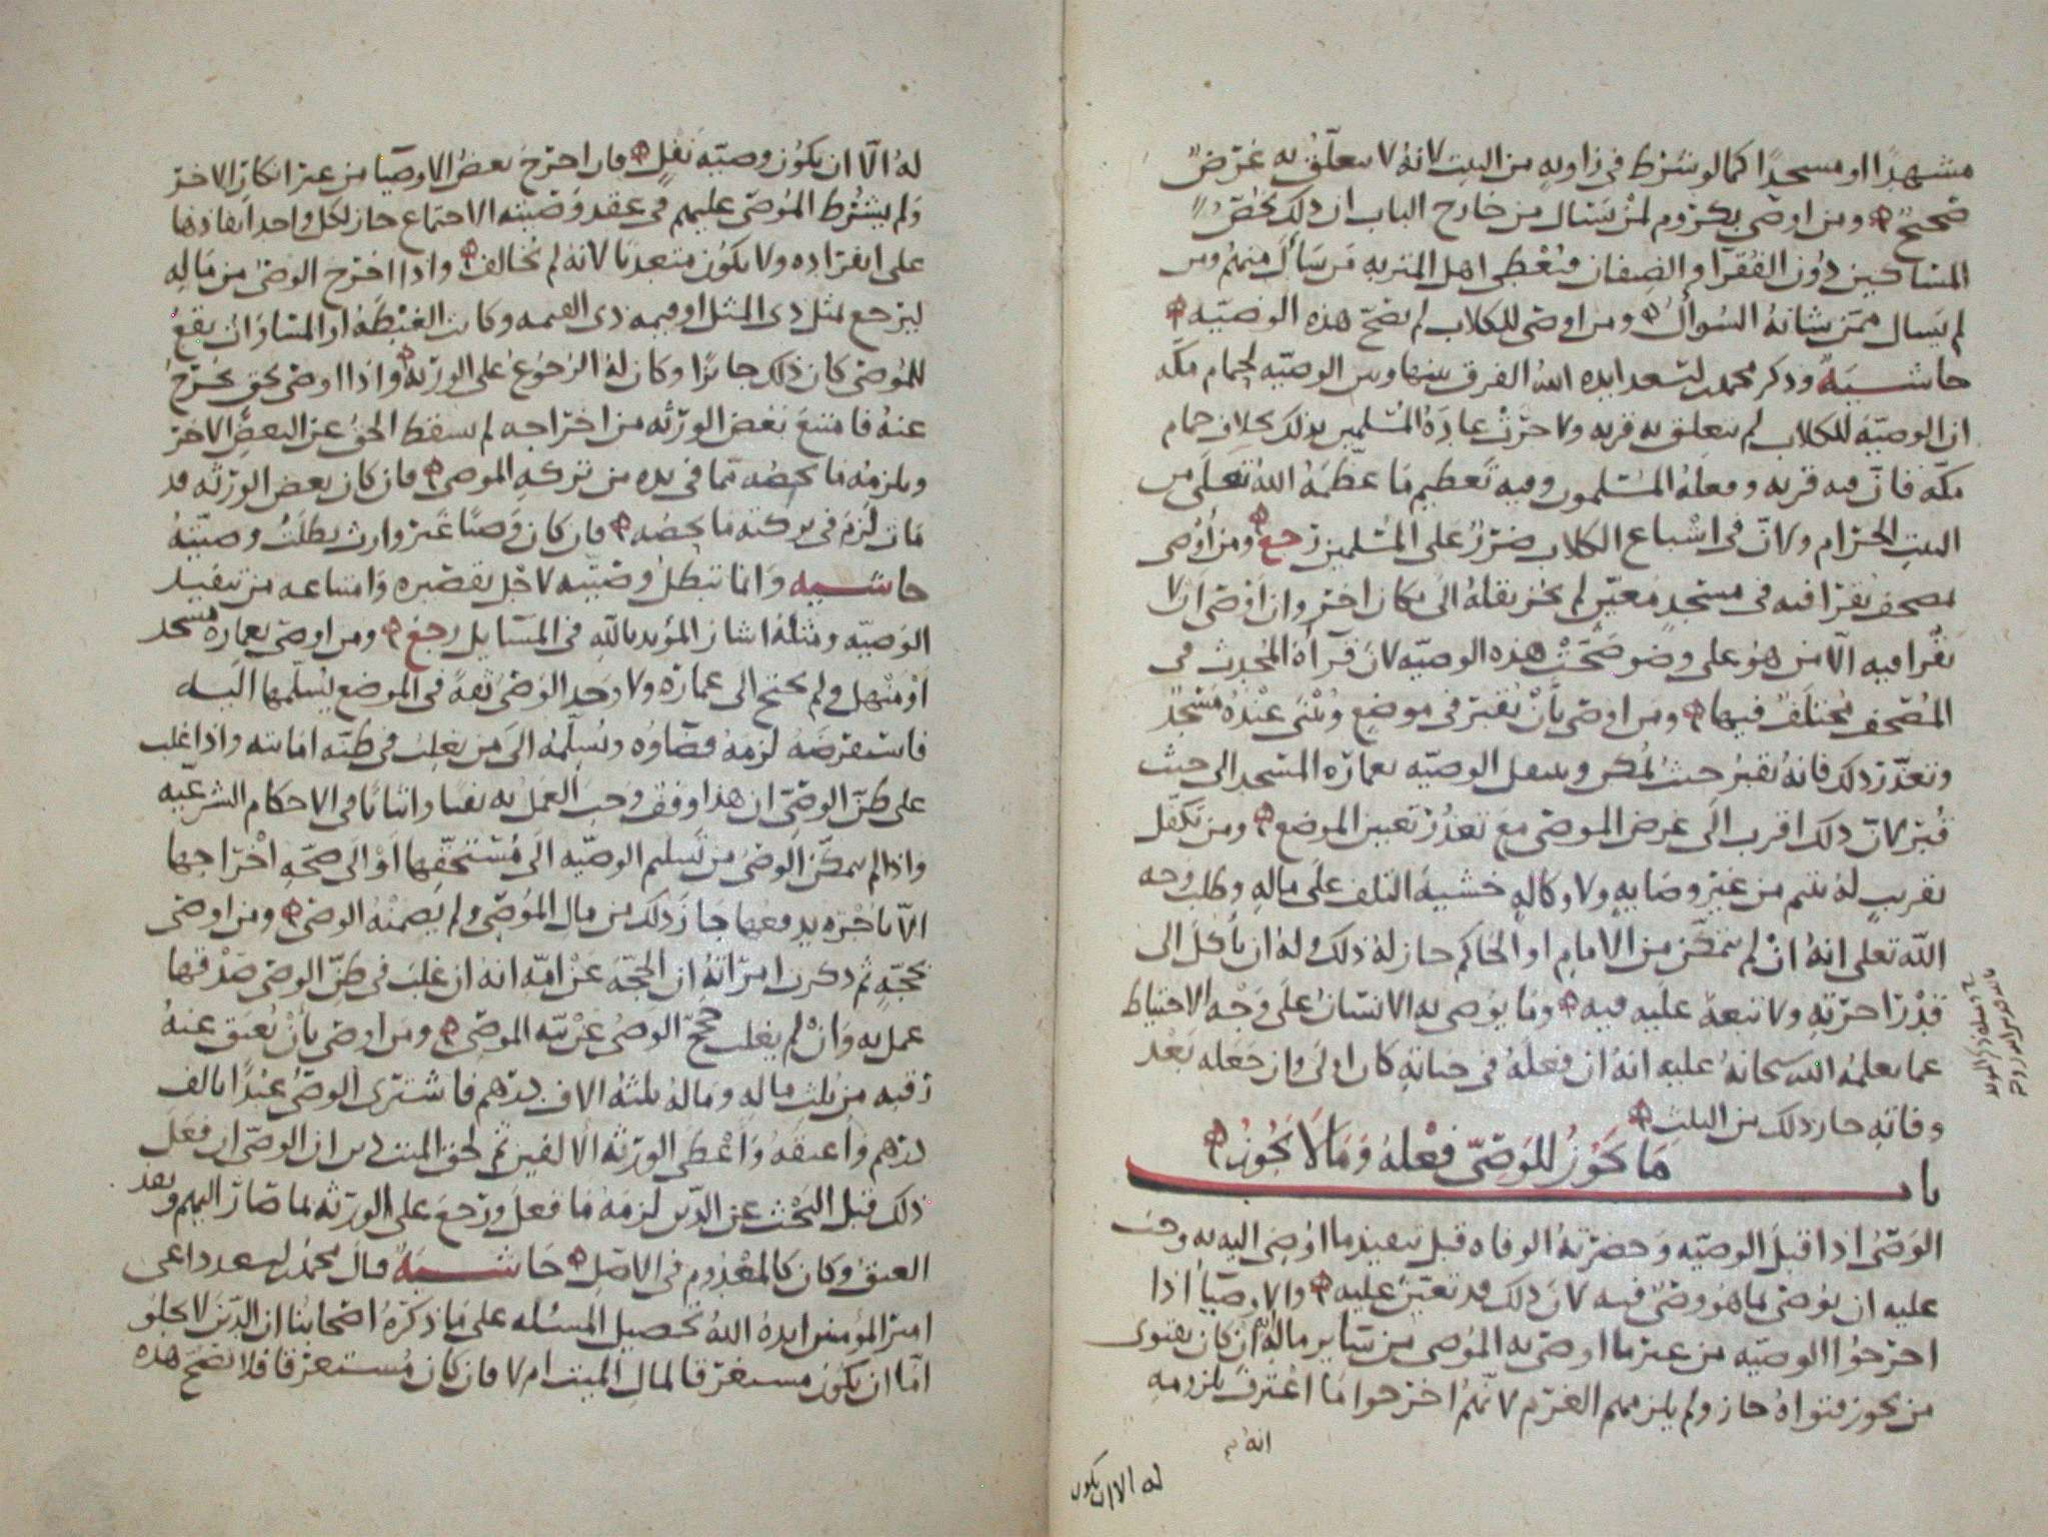 مشهدًا او مسجدًا كما لو شرط في زاويه من البيت لانه لا يتعلق به غرض
صحيح ومن اوصى بكروم لمن يسال من خارج الباب ان ذلك يخص
المساكين دون الفقرآ والضيفان فيعطى اهل القريه من سأل منهم ومن
لم يسال ممن شانه السوال ومن اوصى للكلاب لم تصح هذه الوصيّه
حاشية وذكر محمد بن اسعد ايده الله الفرق بينها وبين الوصيّه لحمام مكّه
ان الوصيّه للكلاب لم تتعلق به قربه ولا جرت عادة المسلمين بذلك بخلاف حمام
مكّه فان فيه قربه وفعله المسلمون وفيه تعظيم ما عظّمه الله تعلى من
البيت الحرام ولان في اشباع الكلاب ضررٌ على المسلمين رجع ومن أوصى
بمصحف يقرا فيه في مسجدٍ معيّن لم يجز نقله الى مكان اخر وان اوصى ان لا
يقرا فيه الّا من هو على وضو صحّت هذه الوصيّه لان قرآة المحدث في
المصحف مختلف فيها ومن اوصى بأن يُقبر في موضع ويُبنى عنده مسجدٌ
وتعذّر ذلك فانه يُقبر حيث يُمكن وتنقل الوصيّه بعمارة المسجد الى حيث
قُبر لان ذلك اقرب الى غرض الموصي مع تعذر تعيين الموضع ومن تكفّل
بقريبٍ له يتيم من غير وصايه ولا وكالهٍ خشية التلف على ماله وطلب وجه
الله تعلى انه ان لم يتمكّن من الامام او الحاكم جاز له ذلك وله ان يأكل الى
قدر اجرته ولا تبعة عليه فيه وما يوصي به الانسان على وجه الاحتياط
عما يعلمه الله سبحانه عليه انه ان فعله في حياته كان اولى وان جعله بعد
وفاته جاز ذلك من الثلث
باب ما يجوز للوصيّ فعله وما لا يجوز
الوصيّ اذا قبل الوصيّه وحضرته الوفاه قبل تنفيذ ما اوصي اليه به وجب
عليه ان يوصي بما هو وصيّ فيه لان ذلك قد تعيّن عليه والاوصيآ اذا
اخرجوا الوصيّه من غير ما اوصى به الموصي من ساير ماله ان كان بفتوى
من يجوز فتواه جاز ولم يلزمهم الغرم لانهم اخرجوا ما اعترف بلزومه
انه
له الا ان يكون
له الّا ان يكون وصيّه نفل فان اخرج بعض الاوصيآ من غير انكار الاخر
ولم يشترط الموصي عليهم في عقد وصيته الاجتماع جاز لكل واحد انفاذها
على انفراده ولا يكون متعديا لانه لم يخالف واذا اخرج الوصيّ من ماله
ليرجع بمثل ذي المثل او قيمه ذي القيمه وكانت الغبطة او المساواة تقع
للموصي كان ذلك جائزًا وكان له الرجوع على الورثة واذا اوصى بحق يخرج
عنه فامتنع بعض الورثه من اخراجه لم يسقط الحق عن البعض الاخر
ويلزمه ما يخصه مما في يده من تركه الموصي فان كان بعض الورثه قد
مات لزم في تركته ما يخصه فان كان وصيًا غير وارث بطلت وصيّته
حاشيه وانما تبطل وصيّته لاجل تقصيره وامتناعه من تنفيذ
الوصيّه ومثله اشار المؤيد بالله في المسايل رجع ومن اوصى بعمارة مسجد
او منهل ولم يحتج الى عمارة ولا وجد الوصيّ ثقةً في الموضع يسلّمها اليه
فاستقرضه لزمه قضاوه ويسلّمه الى من يغلب في ظنّه امانته واذا غلب
على ظنّ الوصيّ ان هذا وقف وجب العمل به نفيا واثباتا في الاحكام الشرعيه
واذا لم يتمكّن الوصيّ من تسليم الوصيّه الى مستحقّها او الى صحّه اخراجها
الّا باجره يدفعها جاز ذلك من مال الموصي ولم يضمنه الوصيّ ومن اوصى
بحجّه ثم ذكرت امراته ان الحجّة عن امّه انه ان غلب في ظنّ الوصيّ صدقها
عمل به وان لم يغلب حجّج الوصيّ عن نيّه الموصي ومن اوصى بأن يُعتق عنه
رقبه من ثلث ماله وماله ثلثة الاف درهم فاشترى الوصيّ عبدًا بالف
درهم واعتقه واعطى الورثة الالفين ثم لحق الميت دين ان الوصيّ ان فعل
ذلك قبل البحث عن الدّين لزمه ما فعل ورجع على الورثه بما صار اليهم ونفذ
العتق وكان كالمعدوم في الاصل حاشية قال محمد بن اسعد داعي
امير المؤمنين ايده الله تحصيل المسئله على ما ذكره اصحابنا ان الدّين لا يخلو
امّا ان يكون مستغرقا لمال الميت ام لا فان كان مستغرقا فلا تصح هذه